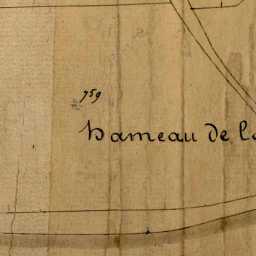 759
hameau de la